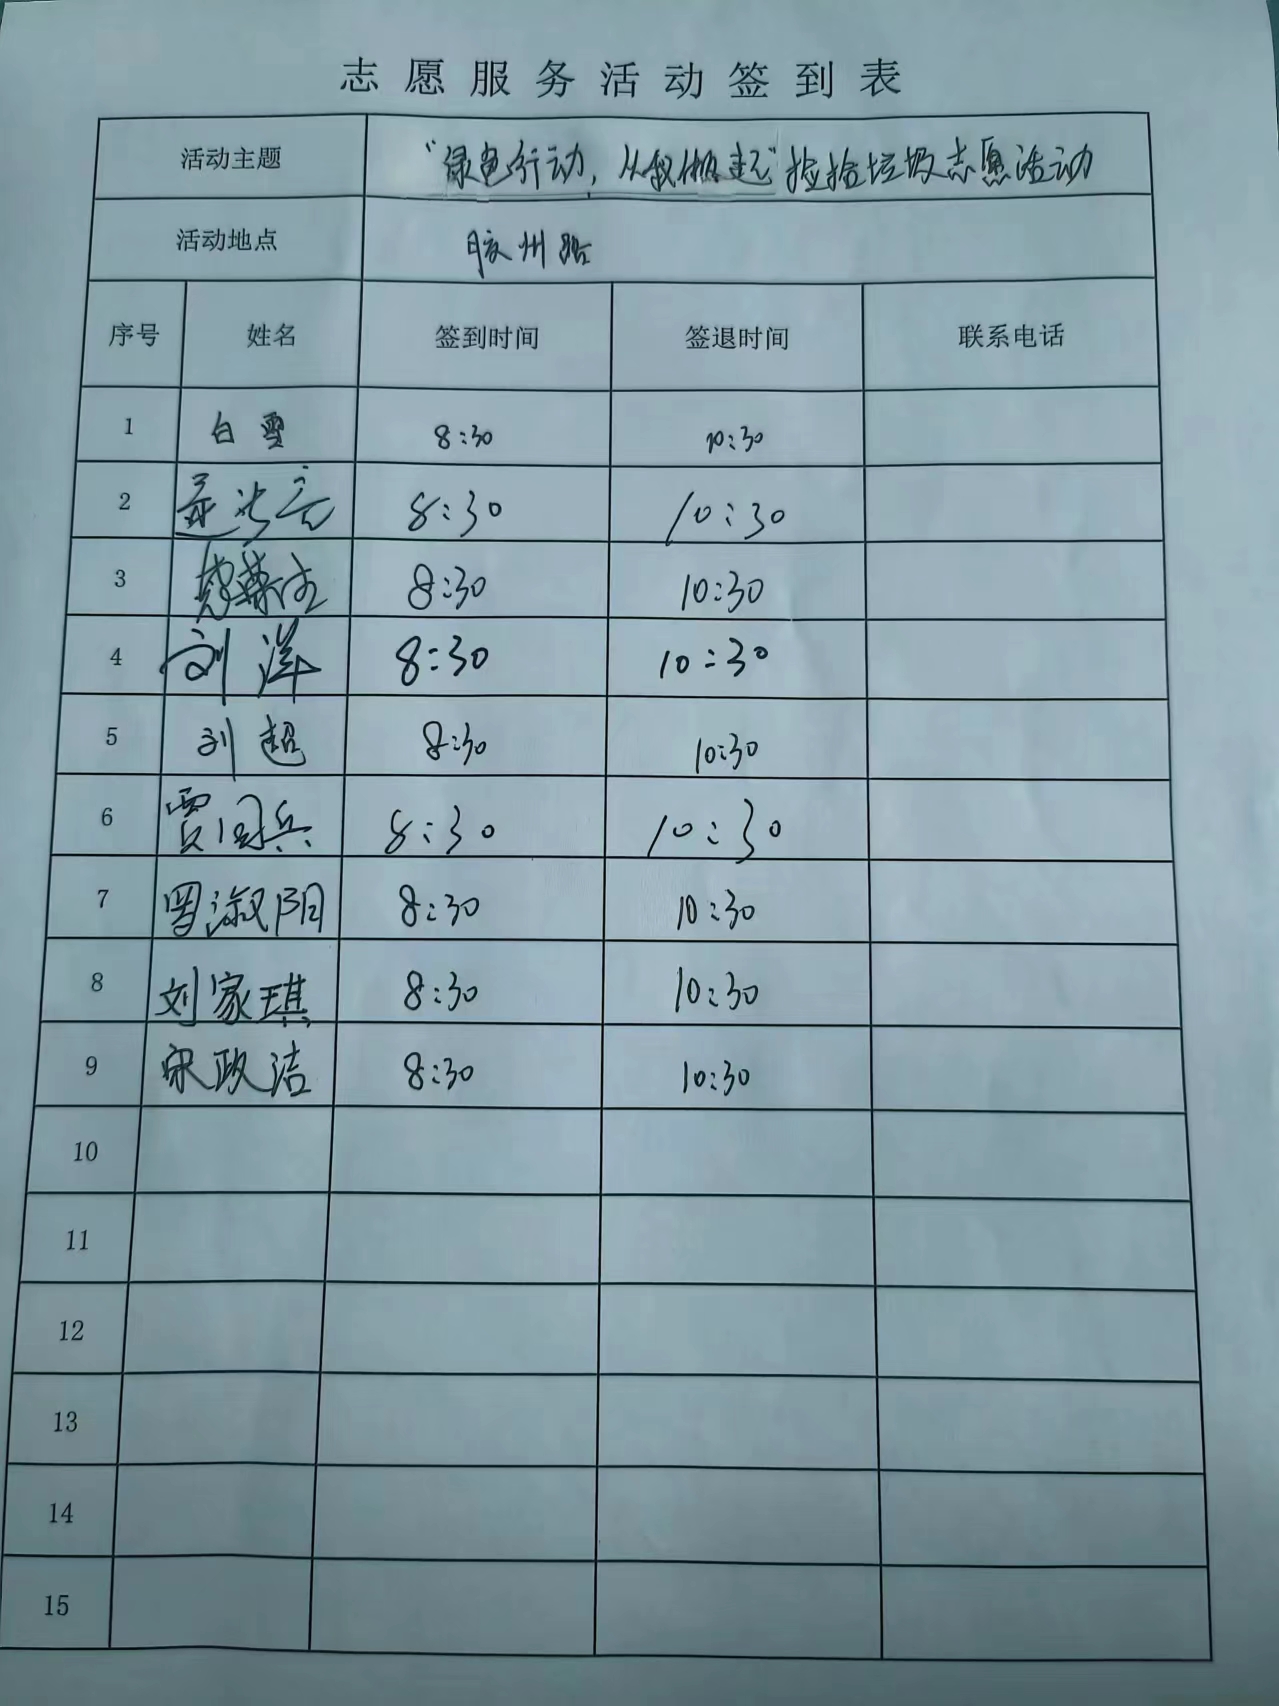 志愿服务活动签到表
活动主题 “绿色行动，从我做起”捡拾垃圾志愿活动
活动地点 胶州路
序号 姓名 签到时间 签退时间 联系电话
1 白雪 8:30 10:30
2 8:30 10:30
3 8:30 10:30
4 刘洋 8:30 10:30
5 刘超 8:30 10:30
6 贾同兵 8:30 10:30
7 罗淑阳 8:30 10:30
8 刘家琪 8:30 10:30
9 宋政洁 8:30 10:30
10
11
12
13
14
15